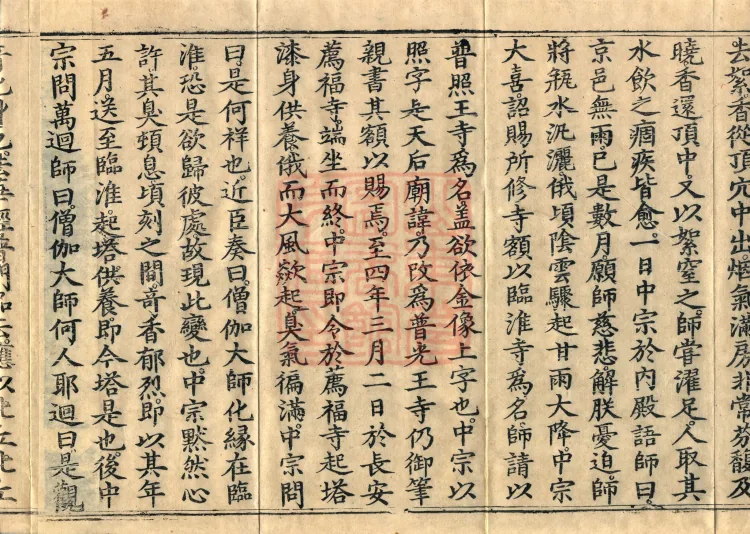 去絮香從頂穴中出煙氣滿房非常芬馥及
曉香還頂中又以絮窒之師嘗濯足人取其
水飲之痼疾皆愈一日中宗於內殿語師曰
京邑無雨已是數月願師慈悲解朕憂迫師
將瓶水汎灑俄頃陰雲驟起甘雨大降中宗
大喜詔賜所修寺額以臨淮寺爲名師請以
普照王寺爲名盖欲依金像上字也中宗以
照字是天后廟諱乃改爲普光王寺仍御筆
親書其額以賜焉至四年三月二日於長安
薦福寺端坐而終中宗即令於薦福寺起塔
漆身供養俄而大風歘起臭氣徧滿中宗問
曰是何祥也近臣奏曰僧伽大師化緣在臨
淮恐是欲歸彼處故現此變也中宗默然心
許其臭頓息頃刻之間奇香郁烈即以其年
五月送至臨淮起塔供養即今塔是也後中
宗問萬迴師曰僧伽大師何人耶迴曰是觀